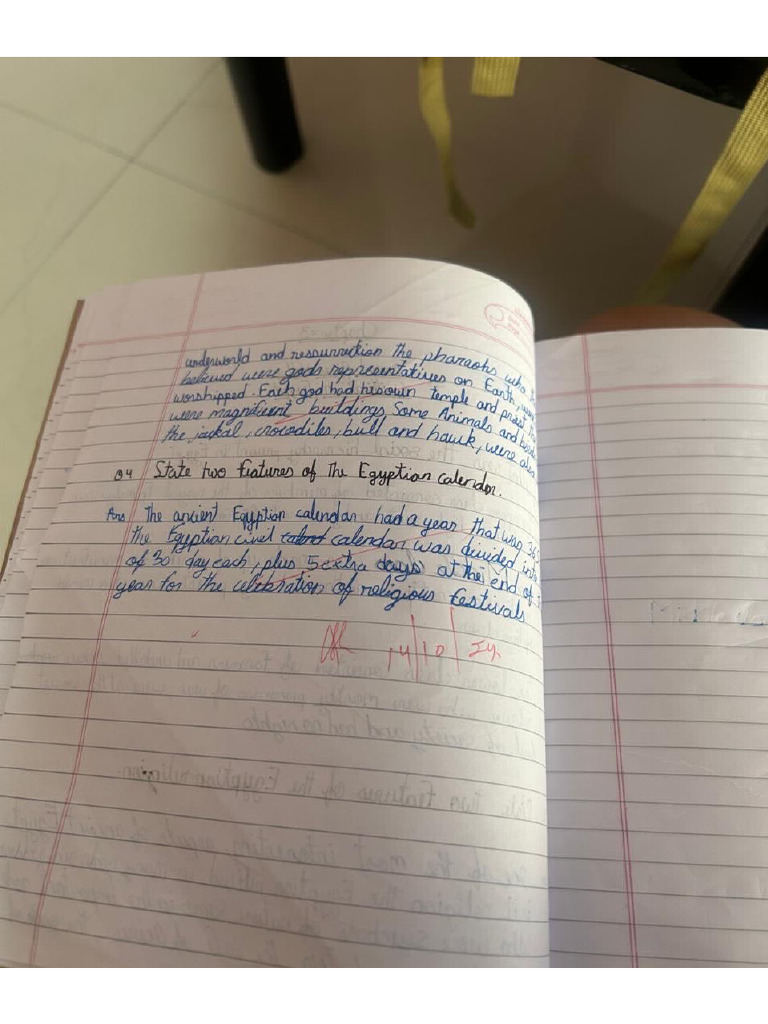 underworld and ressurrection the pharaohs who
believed were gods representatives on Earth, were
worshipped. Each god had his own temple and priest
were magnificent buildings Some Animals and
the jackal, crocodiles, bull and hawk, were also
Q4 State two features of The Egyption calendar.
Ans The ancient Egyption calendar had a year that was 36
the Egyptian civil calendar was divided into
of 30 day each, plus 5 extra days at the end of
year for the celibration of religious festivals
14/10/24